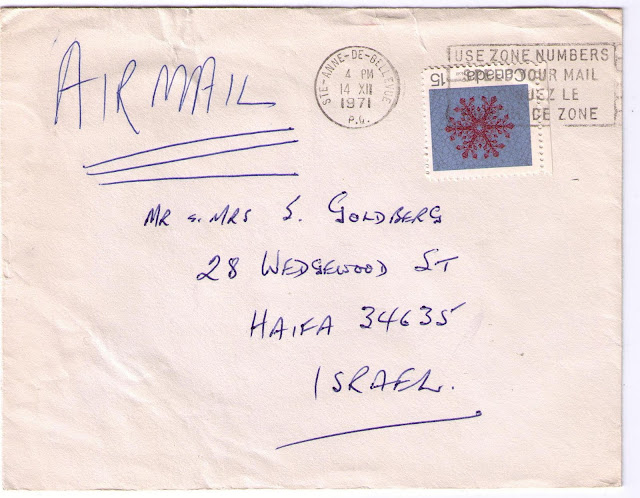 AIR MAIL
STE-ANNE-DE-BELLEVUE
4 PM
14 XII
1971
P.Q.
USE ZONE NUMBERS
YOUR MAIL
LE
DE ZONE
Canada 15
MR & MRS S. GOLDBERG
28 WEDGEWOOD ST
HAIFA 34635
ISRAEL.